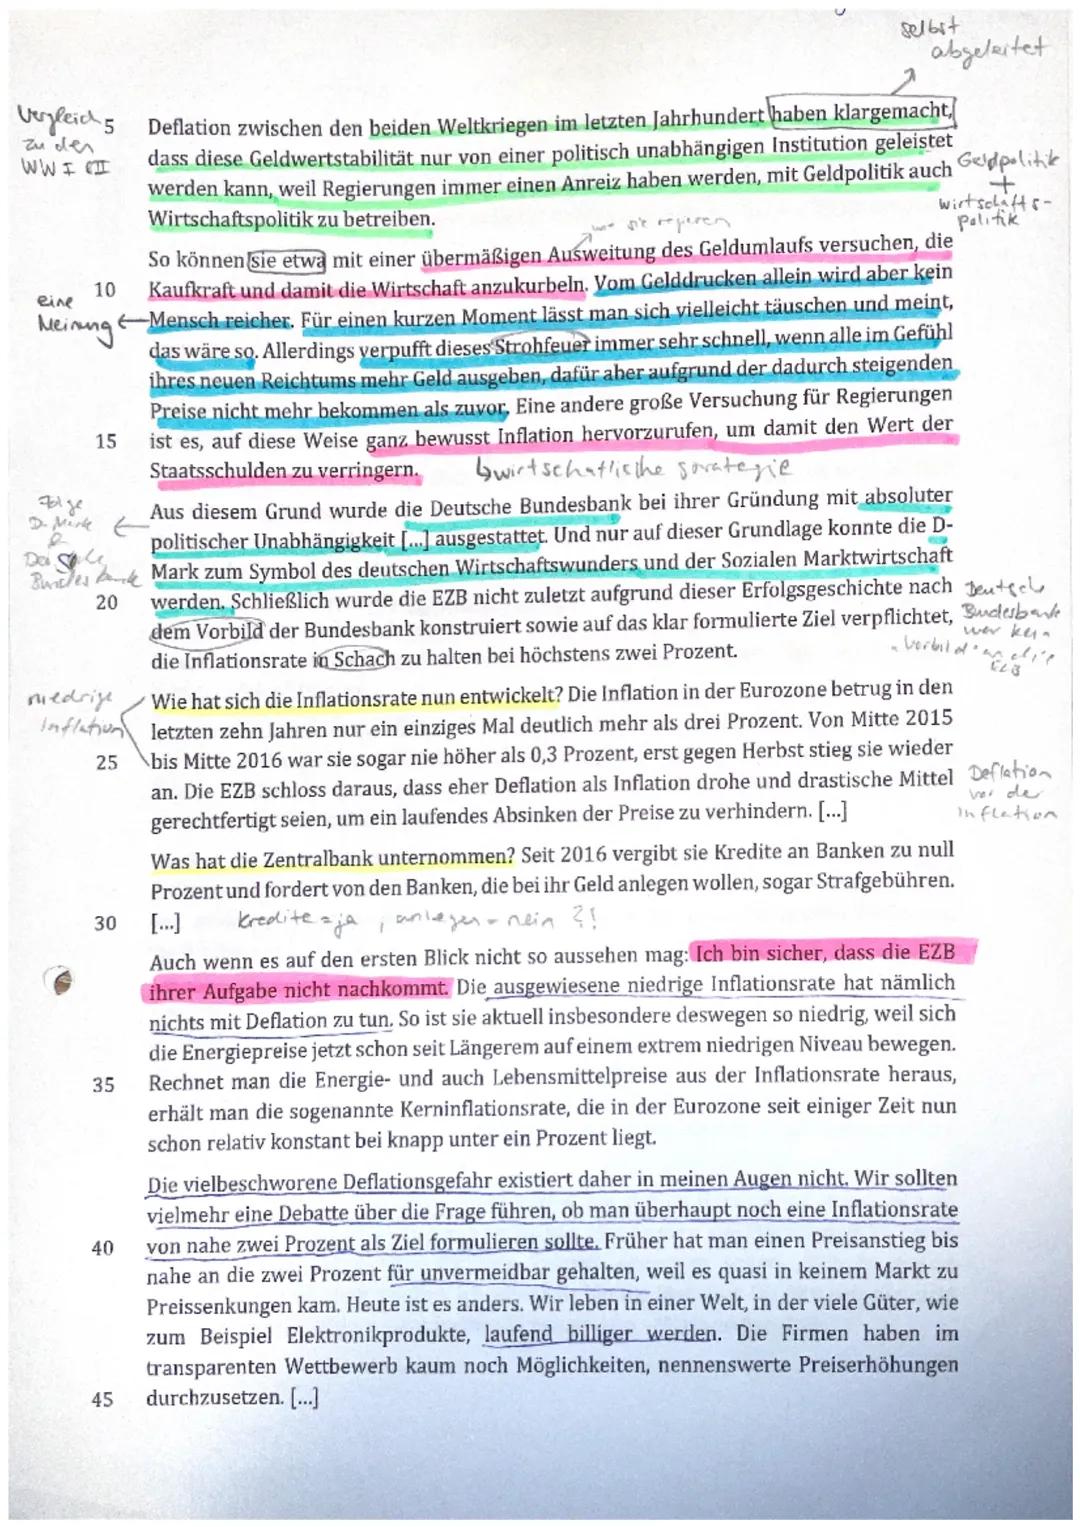 selbst
abgeleitet
Vergleich
zu den
WW I &II
5 Deflation zwischen den beiden Weltkriegen im letzten Jahrhundert haben klargemacht,
dass diese Geldwertstabilität nur von einer politisch unabhängigen Institution geleistet
werden kann, weil Regierungen immer einen Anreiz haben werden, mit Geldpolitik auch
Wirtschaftspolitik zu betreiben.
Geldpolitik
+
wirtschafts-
politik
sie regieren
So können sie etwa mit einer übermäßigen Ausweitung des Geldumlaufs versuchen, die
10 Kaufkraft und damit die Wirtschaft anzukurbeln. Vom Gelddrucken allein wird aber kein
Mensch reicher. Für einen kurzen Moment lässt man sich vielleicht täuschen und meint,
das wäre so. Allerdings verpufft dieses Strohfeuer immer sehr schnell, wenn alle im Gefühl
ihres neuen Reichtums mehr Geld ausgeben, dafür aber aufgrund der dadurch steigenden
Preise nicht mehr bekommen als zuvor. Eine andere große Versuchung für Regierungen
15 ist es, auf diese Weise ganz bewusst Inflation hervorzurufen, um damit den Wert der
Staatsschulden zu verringern.
eine
Meinung
Folge
D-Mark
&
Bundesbank
Aus diesem Grund wurde die Deutsche Bundesbank bei ihrer Gründung mit absoluter
politischer Unabhängigkeit [...] ausgestattet. Und nur auf dieser Grundlage konnte die D-
Mark zum Symbol des deutschen Wirtschaftswunders und der Sozialen Marktwirtschaft
20 werden. Schließlich wurde die EZB nicht zuletzt aufgrund dieser Erfolgsgeschichte nach
dem Vorbild der Bundesbank konstruiert sowie auf das klar formulierte Ziel verpflichtet,
die Inflationsrate in Schach zu halten bei höchstens zwei Prozent.
Bundesbank
Vorbild
EZB
niedrige
Inflation
Wie hat sich die Inflationsrate nun entwickelt? Die Inflation in der Eurozone betrug in den
letzten zehn Jahren nur ein einziges Mal deutlich mehr als drei Prozent. Von Mitte 2015
25 bis Mitte 2016 war sie sogar nie höher als 0,3 Prozent, erst gegen Herbst stieg sie wieder
an. Die EZB schloss daraus, dass eher Deflation als Inflation drohe und drastische Mittel
gerechtfertigt seien, um ein laufendes Absinken der Preise zu verhindern. [...]
Deflation
vor der
Inflation
Was hat die Zentralbank unternommen? Seit 2016 vergibt sie Kredite an Banken zu null
Prozent und fordert von den Banken, die bei ihr Geld anlegen wollen, sogar Strafgebühren.
30 [...] Kredite = ja, anlegen = nein ?!
Auch wenn es auf den ersten Blick nicht so aussehen mag: Ich bin sicher, dass die EZB
ihrer Aufgabe nicht nachkommt. Die ausgewiesene niedrige Inflationsrate hat nämlich
nichts mit Deflation zu tun. So ist sie aktuell insbesondere deswegen so niedrig, weil sich
die Energiepreise jetzt schon seit Längerem auf einem extrem niedrigen Niveau bewegen.
35 Rechnet man die Energie- und auch Lebensmittelpreise aus der Inflationsrate heraus,
erhält man die sogenannte Kerninflationsrate, die in der Eurozone seit einiger Zeit nun
schon relativ konstant bei knapp unter ein Prozent liegt.
Die vielbeschworene Deflationsgefahr existiert daher in meinen Augen nicht. Wir sollten
vielmehr eine Debatte über die Frage führen, ob man überhaupt noch eine Inflationsrate
40 von nahe zwei Prozent als Ziel formulieren sollte. Früher hat man einen Preisanstieg bis
nahe an die zwei Prozent für unvermeidbar gehalten, weil es quasi in keinem Markt zu
Preissenkungen kam. Heute ist es anders. Wir leben in einer Welt, in der viele Güter, wie
zum Beispiel Elektronikprodukte, laufend billiger werden. Die Firmen haben im
transparenten Wettbewerb kaum noch Möglichkeiten, nennenswerte Preiserhöhungen
45 durchzusetzen. [...]